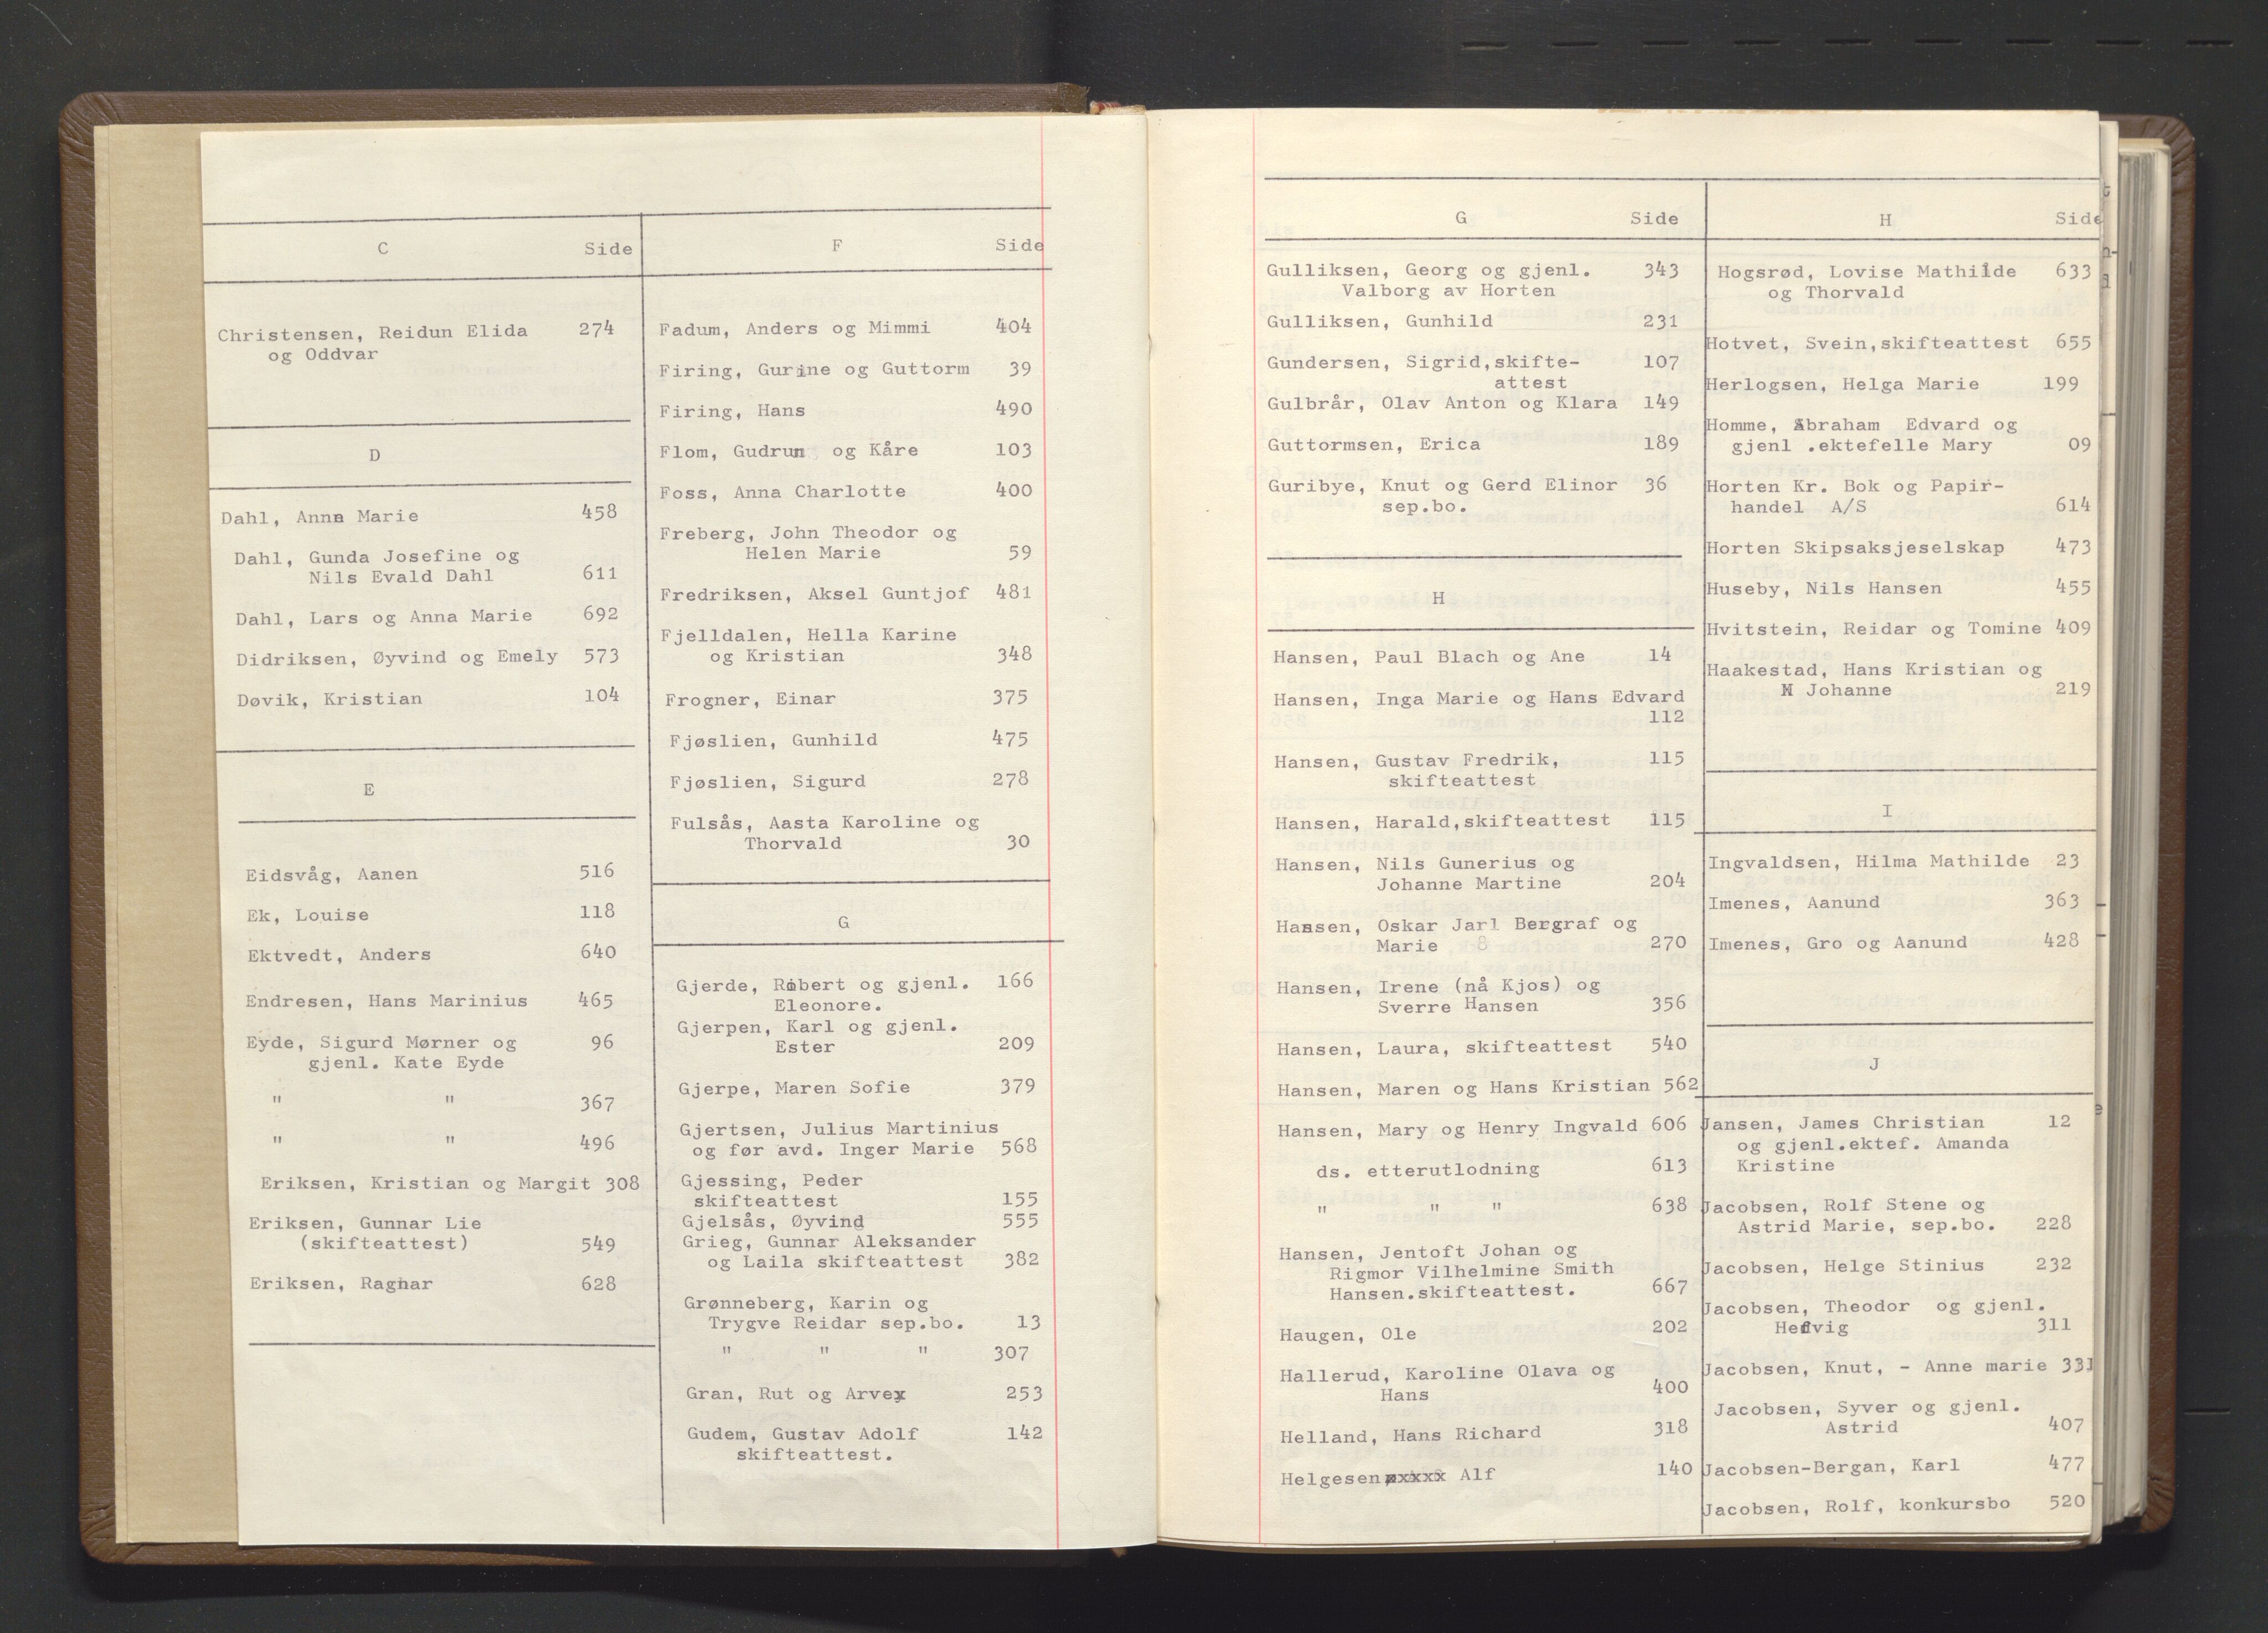 C Side
Christensen, Reidun Elida 274
og Oddvar
D
Dahl, Anna Marie 458
Dahl, Gunda Josefine og
Nils Evald Dahl 611
Dahl, Lars og Anna Marie 692
Didriksen, Øyvind og Emely 573
Døvik, Kristian 104
E
Eidsvåg, Aanen 516
Ek, Louise 118
Ektvedt, Anders 640
Endresen, Hans Marinius 465
Eyde, Sigurd Mørner og 96
gjenl. Kate Eyde
" " 367
" " 496
Eriksen, Kristian og Margit 308
Eriksen, Gunnar Lie
(skifteattest) 549
Eriksen, Ragnar 628
F Side
Fadum, Anders og Mimmi 404
Firing, Gurine og Guttorm 39
Firing, Hans 490
Flom, Gudrun og Kåre 103
Foss, Anna Charlotte 400
Freberg, John Theodor og
Helen Marie 59
Fredriksen, Aksel Guntjof 481
Fjelldalen, Hella Karine
og Kristian 348
Frogner, Einar 375
Fjøslien, Gunhild 475
Fjøslien, Sigurd 278
Fulsås, Aasta Karoline og
Thorvald 30
G
Gjerde, Robert og gjenl. 166
Eleonore.
Gjerpen, Karl og gjenl.
Ester 209
Gjerpe, Maren Sofie 379
Gjertsen, Julius Martinius
og før avd. Inger Marie 568
Gjessing, Peder
skifteattest 155
Gjelsås, Øyvind 555
Grieg, Gunnar Aleksander
og Laila skifteattest 382
Grønneberg, Karin og
Trygve Reidar sep.bo. 13
" " " 307
Gran, Rut og Arvex 253
Gudem, Gustav Adolf 142
skifteattest.
G Side
Gulliksen, Georg og gjenl. 343
Valborg av Horten
Gulliksen, Gunhild 231
Gundersen, Sigrid,skifte- 107
attest
Gulbrår, Olav Anton og Klara 149
Guttormsen, Erica 189
Guribye, Knut og Gerd Elinor 36
sep.bo.
H
Hansen, Paul Blach og Ane 14
Hansen, Inga Marie og Hans Edvard
112
Hansen, Gustav Fredrik, 115
skifteattest
Hansen, Harald,skifteattest 115
Hansen, Nils Gunerius og
Johanne Martine 204
Hansen, Oskar Jarl Bergraf og
Marie 8 270
Hansen, Irene (nå Kjos) og
Sverre Hansen 356
Hansen, Laura, skifteattest 540
Hansen, Maren og Hans Kristian 562
Hansen, Mary og Henry Ingvald 606
ds. etterutlodning 613
" " " 638
Hansen, Jentoft Johan og
Rigmor Vilhelmine Smith
Hansen.skifteattest. 667
Haugen, Ole 202
Hallerud, Karoline Olava og
Hans 400
Helland, Hans Richard 318
Helgesen xxxxx Alf 140
H Side
Hogsrød, Lovise Mathilde 633
og Thorvald
Hotvet, Svein,skifteattest 655
Herlogsen, Helga Marie 199
Homme, Abraham Edvard og
gjenl .ektefelle Mary 09
Horten Kr. Bok og Papir-
handel A/S 614
Horten Skipsaksjeselskap 473
Huseby, Nils Hansen 455
Hvitstein, Reidar og Tomine 409
Haakestad, Hans Kristian og
Johanne 219
I
Ingvaldsen, Hilma Mathilde 23
Imenes, Aanund 363
Imenes, Gro og Aanund 428
J
Jansen, James Christian 12
og gjenl.ektef. Amanda
Kristine
Jacobsen, Rolf Stene og
Astrid Marie, sep.bo. 228
Jacobsen, Helge Stinius 232
Jacobsen, Theodor og gjenl.
Hedvig 311
Jacobsen, Knut, - Anne marie 331
Jacobsen, Syver og gjenl.
Astrid 407
Jacobsen-Bergan, Karl 477
Jacobsen, Rolf, konkursbo 520